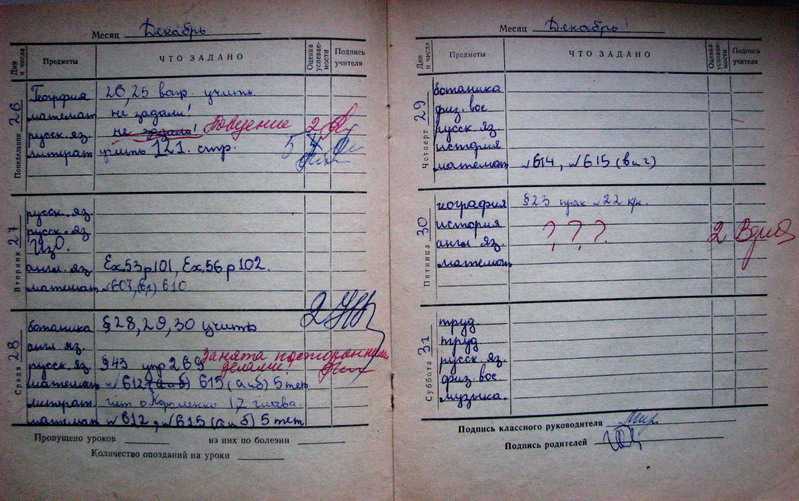 Месяц Декабрь
Дни и числа
Предметы
ЧТО ЗАДАНО
Оценка успевае-мости
Подпись учителя
Понедельник 26
География 20, 25 вопр. учить.
математ не задали!
русск. яз. не задали! Поведение 2
литерат учить 121. стр. 5 4
Вторник 27
русск. яз.
русск. яз.
ИЗО.
англ. яз. Ex.53 p 101, Ex.56 p 102.
математ 610
Среда 28
ботаника §28, 29, 30 учить 2
англ яз.
русск. яз. §43 упр 269 Занята посторонними делами!
математ №612(а и б) 615(а и б) 5 тет.
литерат. чит. о Короленко 17 глава
математ №612, №615 (а и б) 5 тет
Пропущено уроков
из них по болезни
Количество опозданий на уроки
Месяц Декабрь!
Дни и числа
Предметы
ЧТО ЗАДАНО
Оценка успевае-мости
Подпись учителя
Четверг 29
ботаника
физ. вос
русск яз.
история
математ №614, №615 (в и г)
Пятница 30
география §23
история
англ яз. ? ? ? 2
математ
Суббота 31
труд
труд
русск. яз.
физ вос
музыка.
Подпись классного руководителя
Подпись родителей